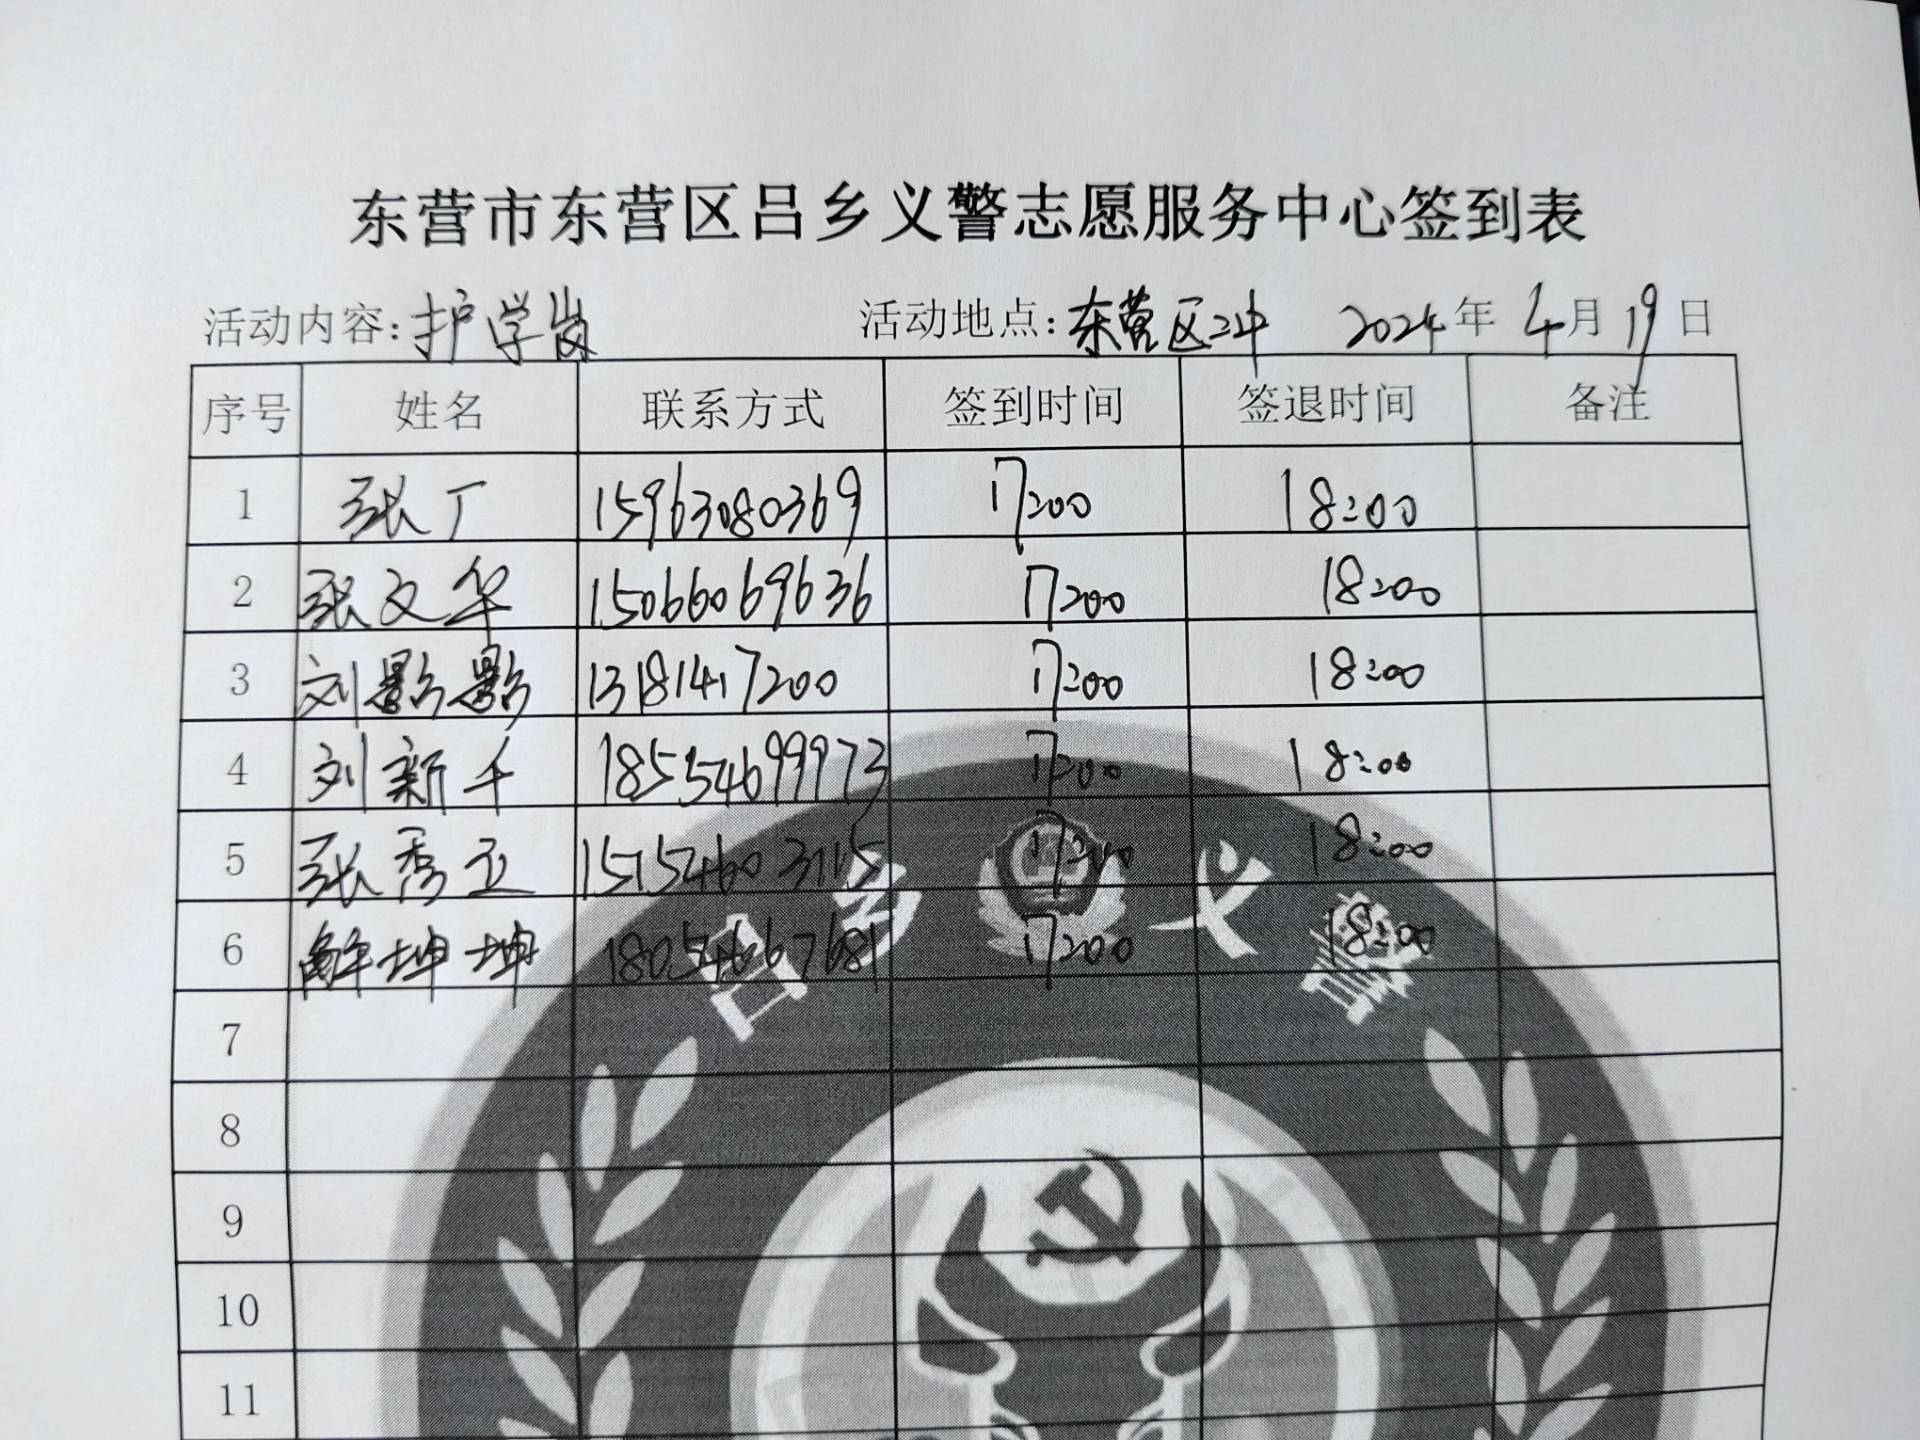 东营市东营区吕乡义警志愿服务中心签到表
活动内容:护学岗 活动地点:东营区二中 2024年4月19日
序号 姓名 联系方式 签到时间 签退时间 备注
1 张广 15963080369 17:00 18:00
2 张文华 15066069636 17:00 18:00
3 刘影影 13181417200 17:00 18:00
4 刘新千 18554699973 17:00 18:00
5 张秀卫 15154603115 17:00 18:00
6 解坤坤 18054667681 17:00 18:00
吕乡义警
7
8
9
10
11